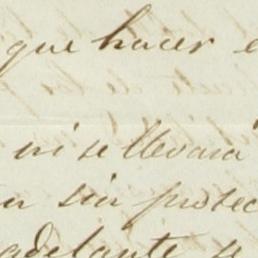 que hacer e
ni se llevara
sin protec
adelante se